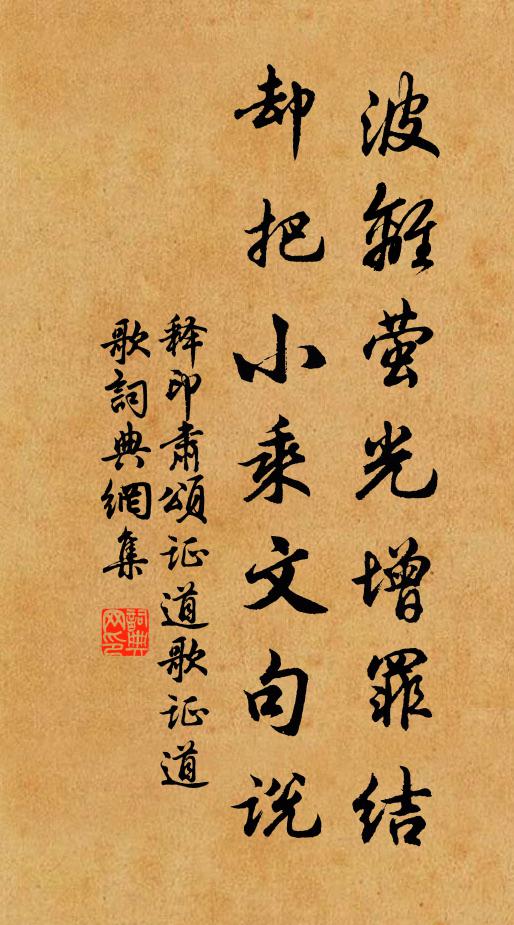 波離萤光增罪结
却把小乘文句说
释印肃颂证道歌证道
歌詞典網集
詞典网印